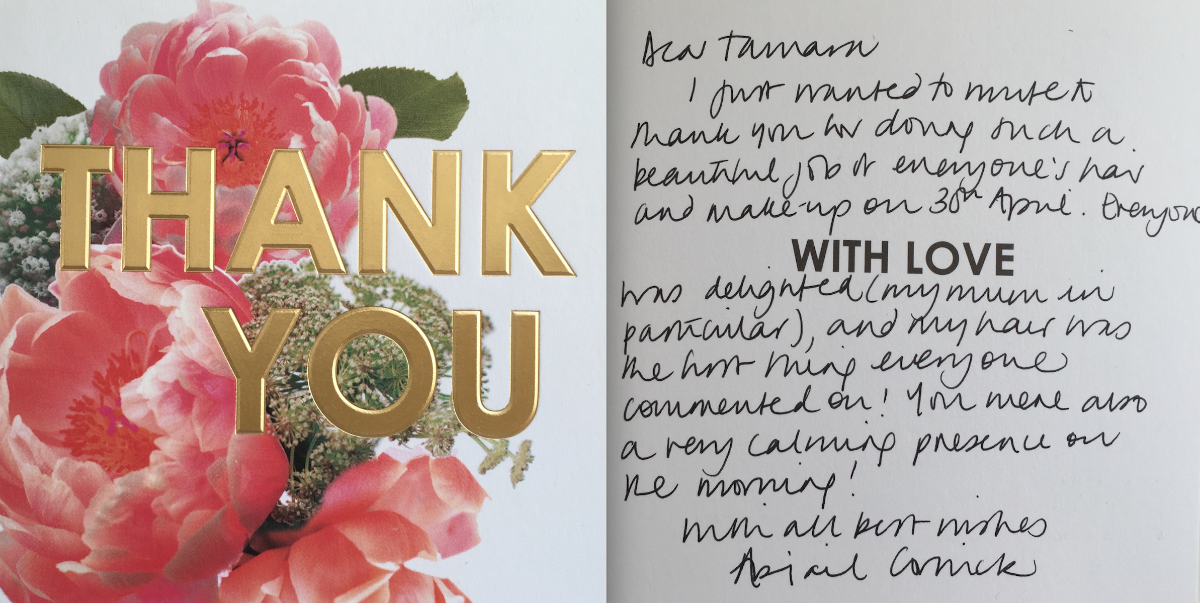 THANK
YOU
Dear Tamara
I just wanted to write to
thank you for doing such a
beautiful job of everyone's hair
and make-up on 30th April. Everyone
WITH LOVE
was delighted (my mum in
particular), and my hair was
the first thing everyone
commented on! You were also
a very calming presence on
the morning!
With all best wishes
Abigail